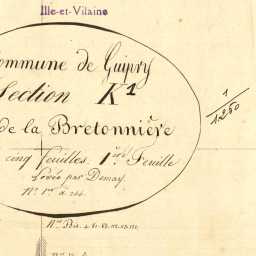 Ille-et-Vilaine
Commune de Guipry
Section K1
1/1250
de la Bretonnière
cinq feuilles. 1ère Feuille
Levée par Demay
Nos 1er à 244.
Nos Bis